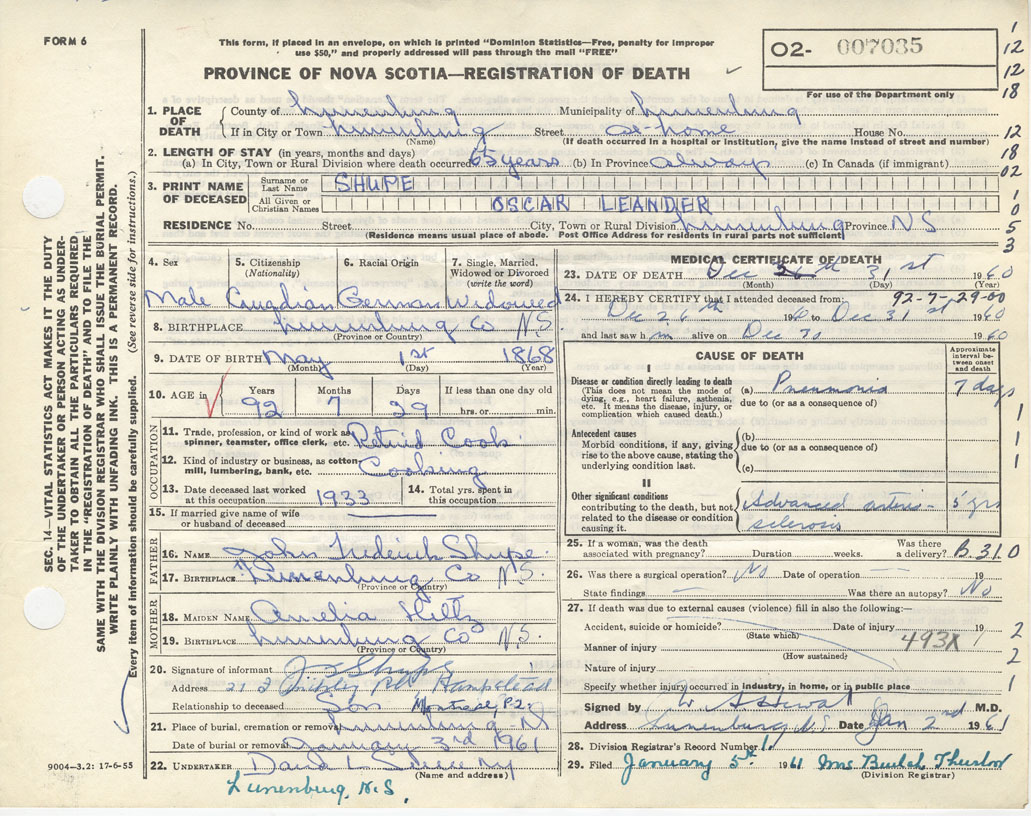 FORM 6
This form, if placed in an envelope, on which is printed "Dominion Statistics—Free, penalty for improper
use $50," and properly addressed will pass through the mail "FREE"
PROVINCE OF NOVA SCOTIA—REGISTRATION OF DEATH
O2- 007035
For use of the Department only
1. PLACE OF DEATH
County of Lunenburg Municipality of Lunenburg
If in City or Town Lunenburg Street at home House No.
(Name) (If death occurred in a hospital or institution, give the name instead of street and number)
2. LENGTH OF STAY (in years, months and days)
(a) In City, Town or Rural Division where death occurred 65 years (b) In Province always (c) In Canada (if immigrant)
3. PRINT NAME OF DECEASED
Surname or Last Name SHUPE
All Given or Christian Names OSCAR LEANDER
RESIDENCE No. Street City, Town or Rural Division Lunenburg Province N S
(Residence means usual place of abode. Post Office Address for residents in rural parts not sufficient)
4. Sex 5. Citizenship (Nationality) 6. Racial Origin 7. Single, Married, Widowed or Divorced (write the word)
Male Canadian German Widowed
8. BIRTHPLACE Lunenburg Co N.S.
(Province or Country)
9. DATE OF BIRTH May 1st 1868
(Month) (Day) (Year)
10. AGE in Years Months Days If less than one day old
92 7 29 hrs. or min.
OCCUPATION
11. Trade, profession, or kind of work as spinner, teamster, office clerk, etc. Retired Cook
12. Kind of industry or business, as cotton mill, lumbering, bank, etc. Cooking
13. Date deceased last worked at this occupation 1933 14. Total yrs. spent in this occupation
15. If married give name of wife or husband of deceased
FATHER
16. NAME John Frederick Shupe
17. BIRTHPLACE Lunenburg Co N.S.
(Province or Country)
MOTHER
18. MAIDEN NAME Amelia Hiltz
19. BIRTHPLACE Lunenburg Co N.S.
(Province or Country)
20. Signature of informant Shupe
Address Hampstead
Relationship to deceased Son Montreal P.Q.
21. Place of burial, cremation or removal Lunenburg
Date of burial or removal January 3rd 1961
22. UNDERTAKER David L
(Name and address)
Lunenburg, N.S.
9004—3.2: 17-6-55
MEDICAL CERTIFICATE OF DEATH
23. DATE OF DEATH Dec 31st 1960
(Month) (Day) (Year)
24. I HEREBY CERTIFY that I attended deceased from: 92-7-29-00
Dec 26th 1960 to Dec 31st 1960
and last saw him alive on Dec 30 1960
CAUSE OF DEATH
Approximate interval between onset and death
I
Disease or condition directly leading to death
(This does not mean the mode of dying, e.g., heart failure, asthenia, etc. It means the disease, injury, or complication which caused death.)
(a) Pneumonia 7 days
due to (or as a consequence of)
Antecedent causes
Morbid conditions, if any, giving rise to the above cause, stating the underlying condition last.
(b)
due to (or as a consequence of)
(c)
II
Other significant conditions
contributing to the death, but not related to the disease or condition causing it.
Advanced arterio-
sclerosis
5 yrs
25. If a woman, was the death associated with pregnancy? Duration weeks. Was there a delivery? B.310
26. Was there a surgical operation? No Date of operation 19
State findings Was there an autopsy? No
27. If death was due to external causes (violence) fill in also the following:—
Accident, suicide or homicide? Date of injury 19
(State which)
Manner of injury 493X
(How sustained)
Nature of injury
Specify whether injury occurred in industry, in home, or in public place
Signed by M.D.
Address Lunenburg N.S. Date Jan 2nd 1961
28. Division Registrar's Record Number 1
29. Filed January 5th 1961 Mrs Beulah
(Division Registrar)
1
12
12
18
12
18
02
1
0
5
3
1
1
1
2
2
1
SEC. 14—VITAL STATISTICS ACT MAKES IT THE DUTY
OF THE UNDERTAKER OR PERSON ACTING AS UNDER-
TAKER TO OBTAIN ALL THE PARTICULARS REQUIRED
IN THE "REGISTRATION OF DEATH" AND TO FILE THE
SAME WITH THE DIVISION REGISTRAR WHO SHALL ISSUE THE BURIAL PERMIT.
WRITE PLAINLY WITH UNFADING INK. THIS IS A PERMANENT RECORD.
Every item of information should be carefully supplied. (See reverse side for instructions.)